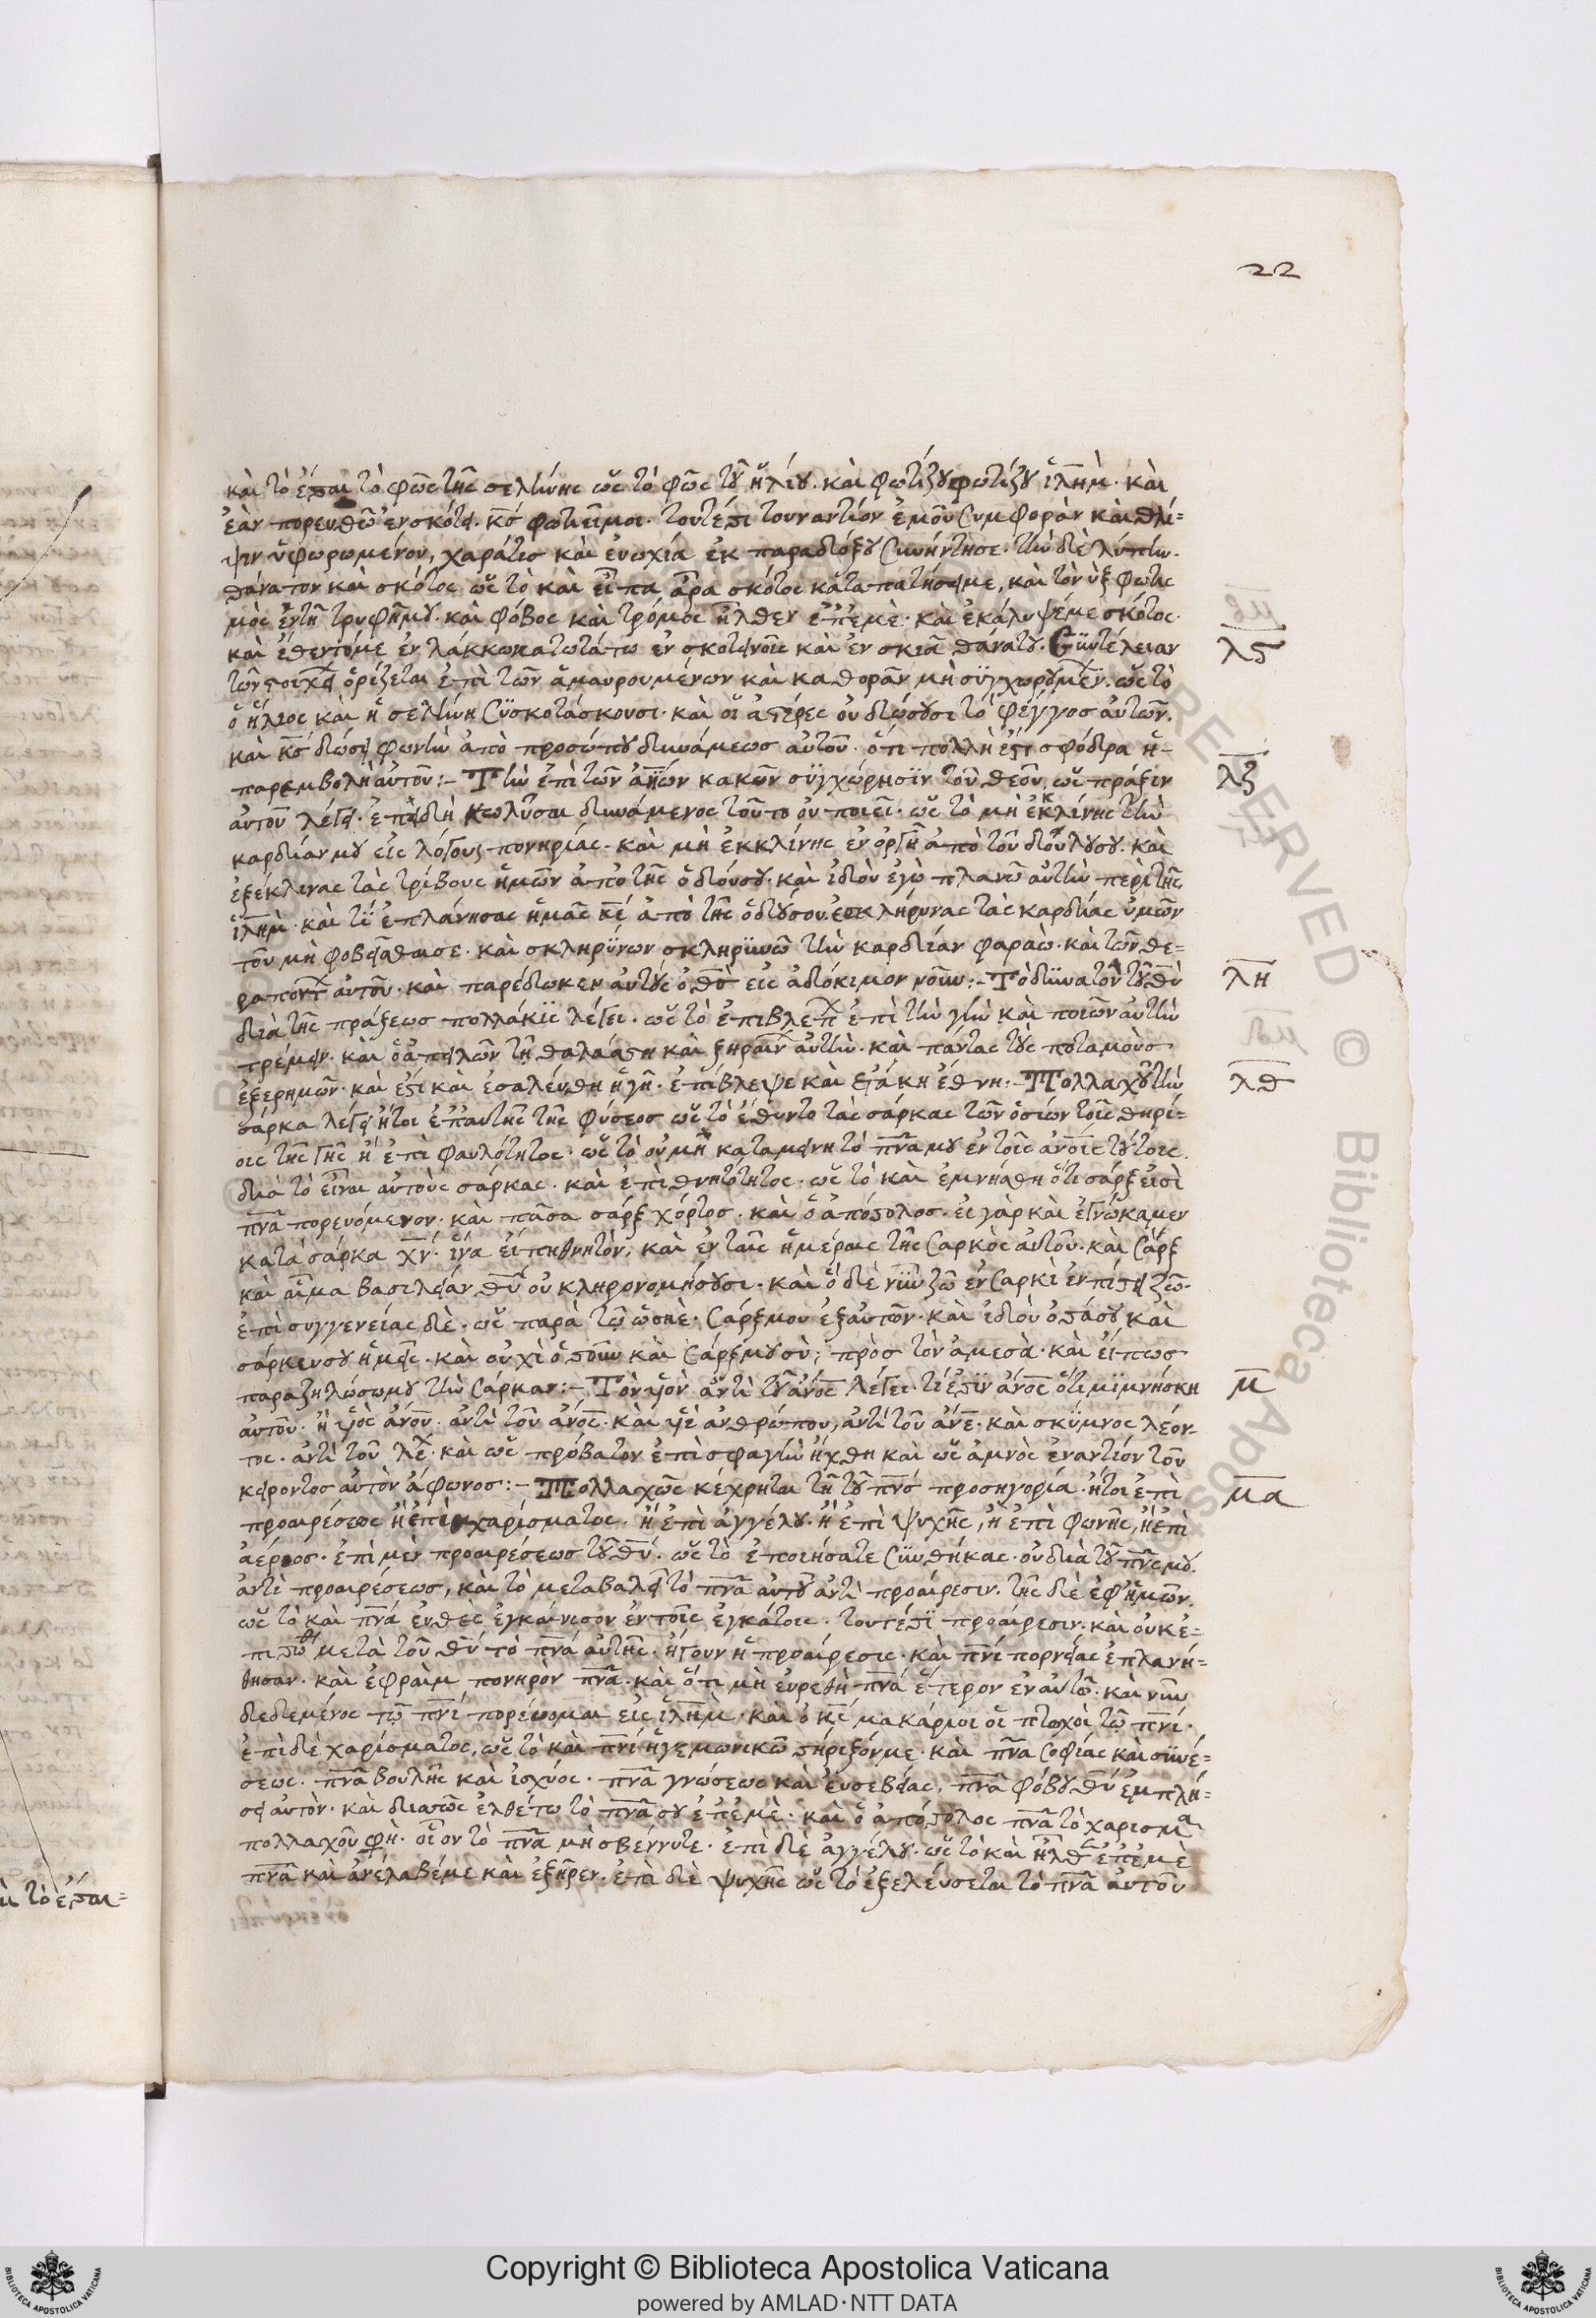 22
καὶ τὸ ἔσται τὸ φῶς τῆς σελήνης ὡς τὸ φῶς τοῦ ἡλίου. καὶ φωτίζου φωτίζου ἰλήμ. καὶ
ἐὰν πορευθῶ ἐν σκότει. κς φωτιεῖ μοι. τουτέστι τουναντίον ἐμοῦ συμφορὰν καὶ θλί=
ψιν ὑφωρωμένου, χαρά τις καὶ εὐωχία ἐκ παραδόξου συνήντησε. τὴν δὲ λύπην.
θάνατον καὶ σκότος ὡς τὸ καὶ εἶπα ἄρα σκότος καταπατήσει με, καὶ τὸν ὺξ φωτισ
μὸς ἐν τῇ τρυφῇ μου. καὶ φόβος καὶ τρόμος ἦλθεν ἐπ' ἐμὲ. καὶ ἐκάλυψέ με σκότος.
καὶ ἔθεντό με ἐν λάκκω κατωτάτω ἐν σκοτεινοῖς καὶ ἐν σκιᾶ θανάτου. Συντέλειαν
λϛ
τῶν στοιχεί ὁρίζεται ἐπὶ τῶν ἀμαυρουμένων καὶ καθορᾶν μὴ συγχωρουμεν. ὡς τὸ
ὁ ἥλιος καὶ ἡ σελήνη συσκοτάσκουσι. καὶ οἱ ἀστέρες οὐ δώσουσι τὸ φέγγοσ αὐτῶν.
καὶ κς δώσει φωνὴν ἀπὸ προσώπου δυνάμεωσ αὐτοῦ. ὅτι πολλὴ ἐστι σφόδρα ἡ-
παρεμβολὴ αὐτοῦ:- Τὴν ἐπὶ τῶν ἀνίων κακῶν συγχώρησιν τοῦ θεοῦ, ὡς πρᾶξιν
λζ
αὐτοῦ λέγει. ἐπειδὴ κωλῦσαι δυνάμενος τοῦτο οὐ ποιεῖ. ὡς τὸ μὴ ἐκκλίνης τὴν
καρδίαν μου εἰς λόγους πονηρίας. καὶ μὴ ἐκκλίνης ἐν ὀργῇ ἀπὸ τοῦ δούλου σου. καὶ
ἐξέκλινας τὰς τρίβους ἡμῶν ἀπὸ τῆς ὁδού σου. καὶ ἰδοὺ ἐγὼ πλανῶ αὐτὴν περὶ τῆς
ἰλήμ. καὶ τί ἐπλάνησας ἡμᾶς κε ἀπὸ τῆς ὁδού σου. ἐσκλήρυνας τὰς καρδίας ὑμῶν
τοῦ μὴ φοβεῖσθαι σε. καὶ σκληρύνων σκληρυνῶ τὴν καρδίαν φαραὼ. καὶ τῶν θε=
ραπόντ αὐτοῦ. καὶ παρέδωκεν αὐτοὺς ὁ θς εἰς ἀδόκιμον νοῦν:- Τὸ δυνατὸν τοῦ θυ
λη
διὰ τῆς πράξεωσ πολλάκις λέγει. ὡς τὸ ἐπιβλεπ ἐπὶ τὴν γῆν καὶ ποιῶν αὐτὴν
τρέμειν. καὶ ὁ ἀπειλῶν τῇ θαλάσση καὶ ξηραίν αὐτὴν. καὶ πάντας τοὺς ποταμοὺσ
ἐξερημῶν. καὶ ἔστι καὶ ἐσαλεύθη ἡ γῆ. ἐπέβλεψε καὶ ἐτάκη ἔθνη:- Πολλαχοῦ τὴν
λθ
σάρκα λέγει ἤτοι ἐπ' αὐτῆς τῆς φύσεοσ ὡς τὸ ἔθεντο τὰς σάρκας τῶν ὁσίων τοῖς θηρί-
οις τῆς γῆς ἢ ἐπὶ φαυλότητος. ὡς τὸ οὐ μὴ καταμείνη τὸ πνα μου ἐν τοῖς ανοις τούτοις.
διὰ τὸ εἶναι αὐτοὺς σάρκας. καὶ ἐπὶ θνητότητος. ὡς τὸ καὶ ἐμνήσθη ὅτι σάρξ εἰσὶ
πνα πορευόμενον. καὶ πᾶσα σάρξ χόρτοσ. καὶ ὁ ἀπόστολοσ. εἰ γὰρ καὶ ἐγνώκαμεν
κατὰ σάρκα χν. ἵνα εἴπη θνητόν, καὶ ἐν ταῖς ἡμέραις τῆς σαρκὸς αὐτοῦ. καὶ σάρξ
καὶ αἷμα βασιλείαν θυ οὐ κληρονομήσουσι. καὶ ὃ δὲ νῦν ζῶ ἐν σαρκὶ ἐν πίστει ζῶ.
ἐπὶ συγγενείας δὲ. ὡς παρὰ τῶ ὠσηὲ. σάρξ μου ἐξ αὐτῶν. καὶ ἰδοὺ ὀστᾶ σου καὶ
σάρκες σου ἡμεῖς. καὶ οὐχὶ ὀστοῦν καὶ σάρξ μου σὺ; πρὸσ τὸν ἀμεσὰ. καὶ εἴπωσ
παραζηλώσω μου τὴν σάρκαν:- Τὸν υἱὸν ἀντὶ τοῦ ανος λέγει. τί ἐστιν ανος ὅτι μιμνήσκη
μ
αὐτοῦ. ἢ υἱὸς ανου. ἀντὶ τοῦ ανος. καὶ υἱὲ ἀνθρώπου, ἀντὶ τοῦ ανε. καὶ σκύμνος λέον-
τος. ἀντὶ τοῦ λε. καὶ ὡς πρόβατον ἐπὶ σφαγὴν ἤχθη καὶ ὡς ἀμνὸς ἐναντίον τοῦ
κείροντοσ αὐτὸν ἄφωνοσ:- Πολλαχῶς κέχρηται τῇ τοῦ πνς προσηγορία. ἤτοι ἐπὶ
μα
προαιρέσεος ἢ ἐπὶ χαρίσματος. ἢ ἐπὶ ἀγγέλου. ἢ ἐπὶ ψυχῆς, ἢ ἐπὶ φωνῆς, ἢ ἐπὶ
ἀέροσ. ἐπὶ μὲν προαιρέσεωσ τοῦ θυ. ὡς τὸ ἐποιήσατε συνθήκας. οὐ διὰ τοῦ πνς μου.
ἀντὶ προαιρέσεωσ, καὶ τὸ μεταβαλεῖ τὸ πνα αὐτοῦ ἀντὶ προαίρεσιν. τῆς δὲ ἐφ' ἡμῶν.
ὡς τὸ καὶ πνα εὐθὲς ἐγκαίνισον ἐν τοῖς ἐγκάτοις. τουτέστι προαίρεσιν. καὶ οὐκ ἐ-
πιστώθη μετὰ τοῦ θυ τὸ πνα αὐτῆς. ἤγουν ἡ προαίρεσις. καὶ πνι πορνείας ἐπλανή=
θησαν. καὶ ἐφραὶμ πονηρὸν πνα. καὶ ὅτι μὴ εὑρεθῇ πνα ἕτερον ἐν αὐτῶ. καὶ νῦν
δεδεμένος τῶ πνι πορεύομαι εἰς ἰλήμ. καὶ ὁ κς μακάριοι οἱ πτωχοὶ τῶ πνι.
ἐπὶ δὲ χαρίσματος, ὡς τὸ καὶ πνι ἡγεμωνικῶ στήριξόν με. καὶ πνα σοφίας καὶ συνέ-
σεως. πνα βουλῆς καὶ ἰσχύος. πνα γνώσεως καὶ εὐσεβείας. πνα φόβου θυ ἐμπλή-
σει αὐτὸν. καὶ διαπῶς ἐλθέτω τὸ πνα σου ἐπ' ἐμὲ. καὶ ὁ ἀπόστολος πνα τὸ χαρισμα
πολλαχοῦ φὴ. οἷον τὸ πνα μὴ σβέννυτε. ἐπὶ δὲ ἀγγέλου. ὡς τὸ καὶ ἦλθ ἐπ' ἐμὲ
πνα καὶ ἀνέλαβέ με καὶ ἐξῆρεν. ἐπὶ δὲ ψυχῆς ὡς τὸ ἐξελεύσεται τὸ πνα αὐτοῦ
Copyright © Biblioteca Apostolica Vaticana
powered by AMLAD·NTT DATA